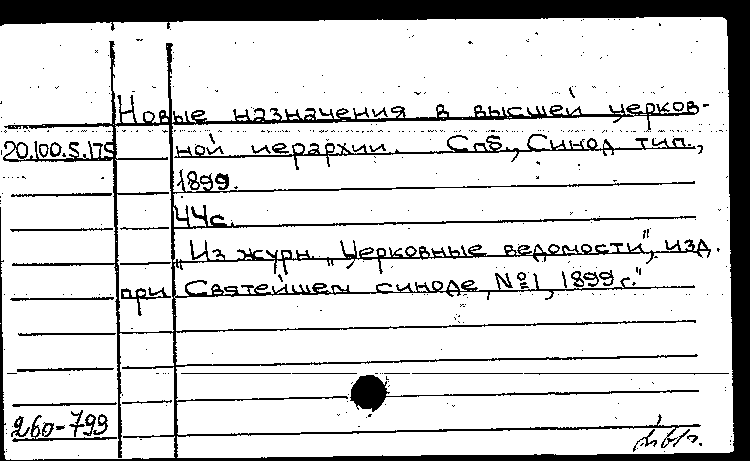 Новые назначения в высшей церков-
20.100.5.175 ной иерархии. Спб., Синод. тип.,
1899.
44с.
„Из журн. „Церковные ведомости", изд.
при Святейшем синоде, №1, 1899 г."
260-799